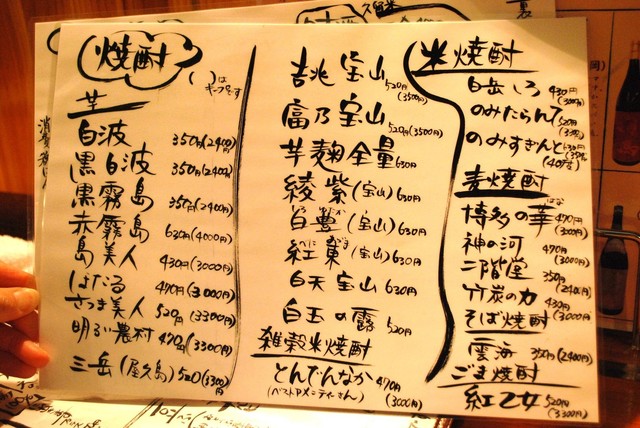 焼酎
( )は
キープです
芋
白波 350円(2400)
黒白波 350円(2400)
黒霧島 350円(2400)
赤霧島 630円(4000)
島美人 430円(3000円)
ほたる 490円(3000円)
さつま美人 520円(3300)
明るい農村 470円(3300円)
三岳(屋久島) 520(3300円)
吉兆宝山 520円(3500)
富乃宝山 520円(3500円)
芋麹全量 630円
綾紫(宝山) 630円
白豊(宝山) 630円
紅東(宝山) 630円
白天宝山 630円
白玉の露 520円
雑穀米焼酎
とんでんなか 470円
(3000円)
米焼酎
白岳しろ 430円
(3000円)
のみたらんて 520円
のみすきんと 630円
麦焼酎
博多の華 470円
(3000円)
神の河 470円
(3000円)
二階堂 350円
(2400円)
竹炭の力 430円
(3000円)
そば焼酎
雲海 350円(2400円)
ごま焼酎
紅乙女 520円
(3300円)